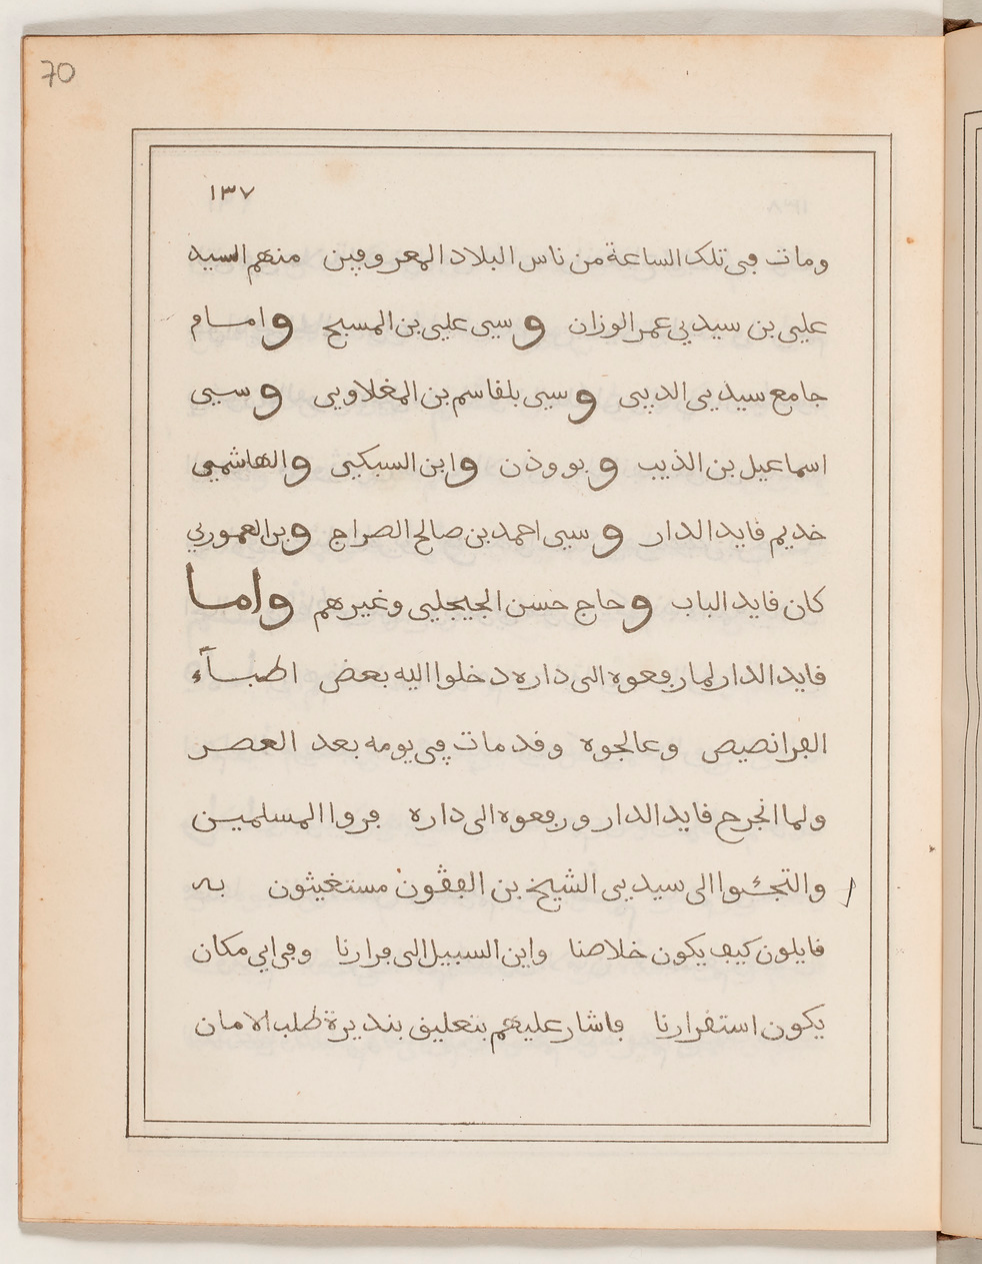 70
١٣٧
ومات في تلك الساعة من ناس البلاد المعروفين منهم السيد
علي بن سيدي عمر الوزان وسي علي بن المسبح وامام
جامع سيدي الديبي وسي بلقاسم بن المغلاوي وسي
اسماعيل بن الذيب وبووذن وابن السبكي والهاشمي
خديم قايد الدار وسي احمد بن صالح الصراج وبن العموري
كان قايد الباب وحاج حسن الجيجلي وغيرهم واما
قايد الدار لما رفعوه الى داره دخلوا اليه بعض اطبـآء
الفرانصيص وعالجوه وقد مات في يومه بعد العصر
ولما انجرح قايد الدار ورفعوه الى داره فروا المسلمين
والتجـئوا الى سيدي الشيخ بن الفقون مستغيثون به
قايلون كيف يكون خلاصنا واين السبيل الى فرارنا وفي اي مكان
يكون استقرارنا فاشار عليهم بتعليق بنديرة طلب الامان